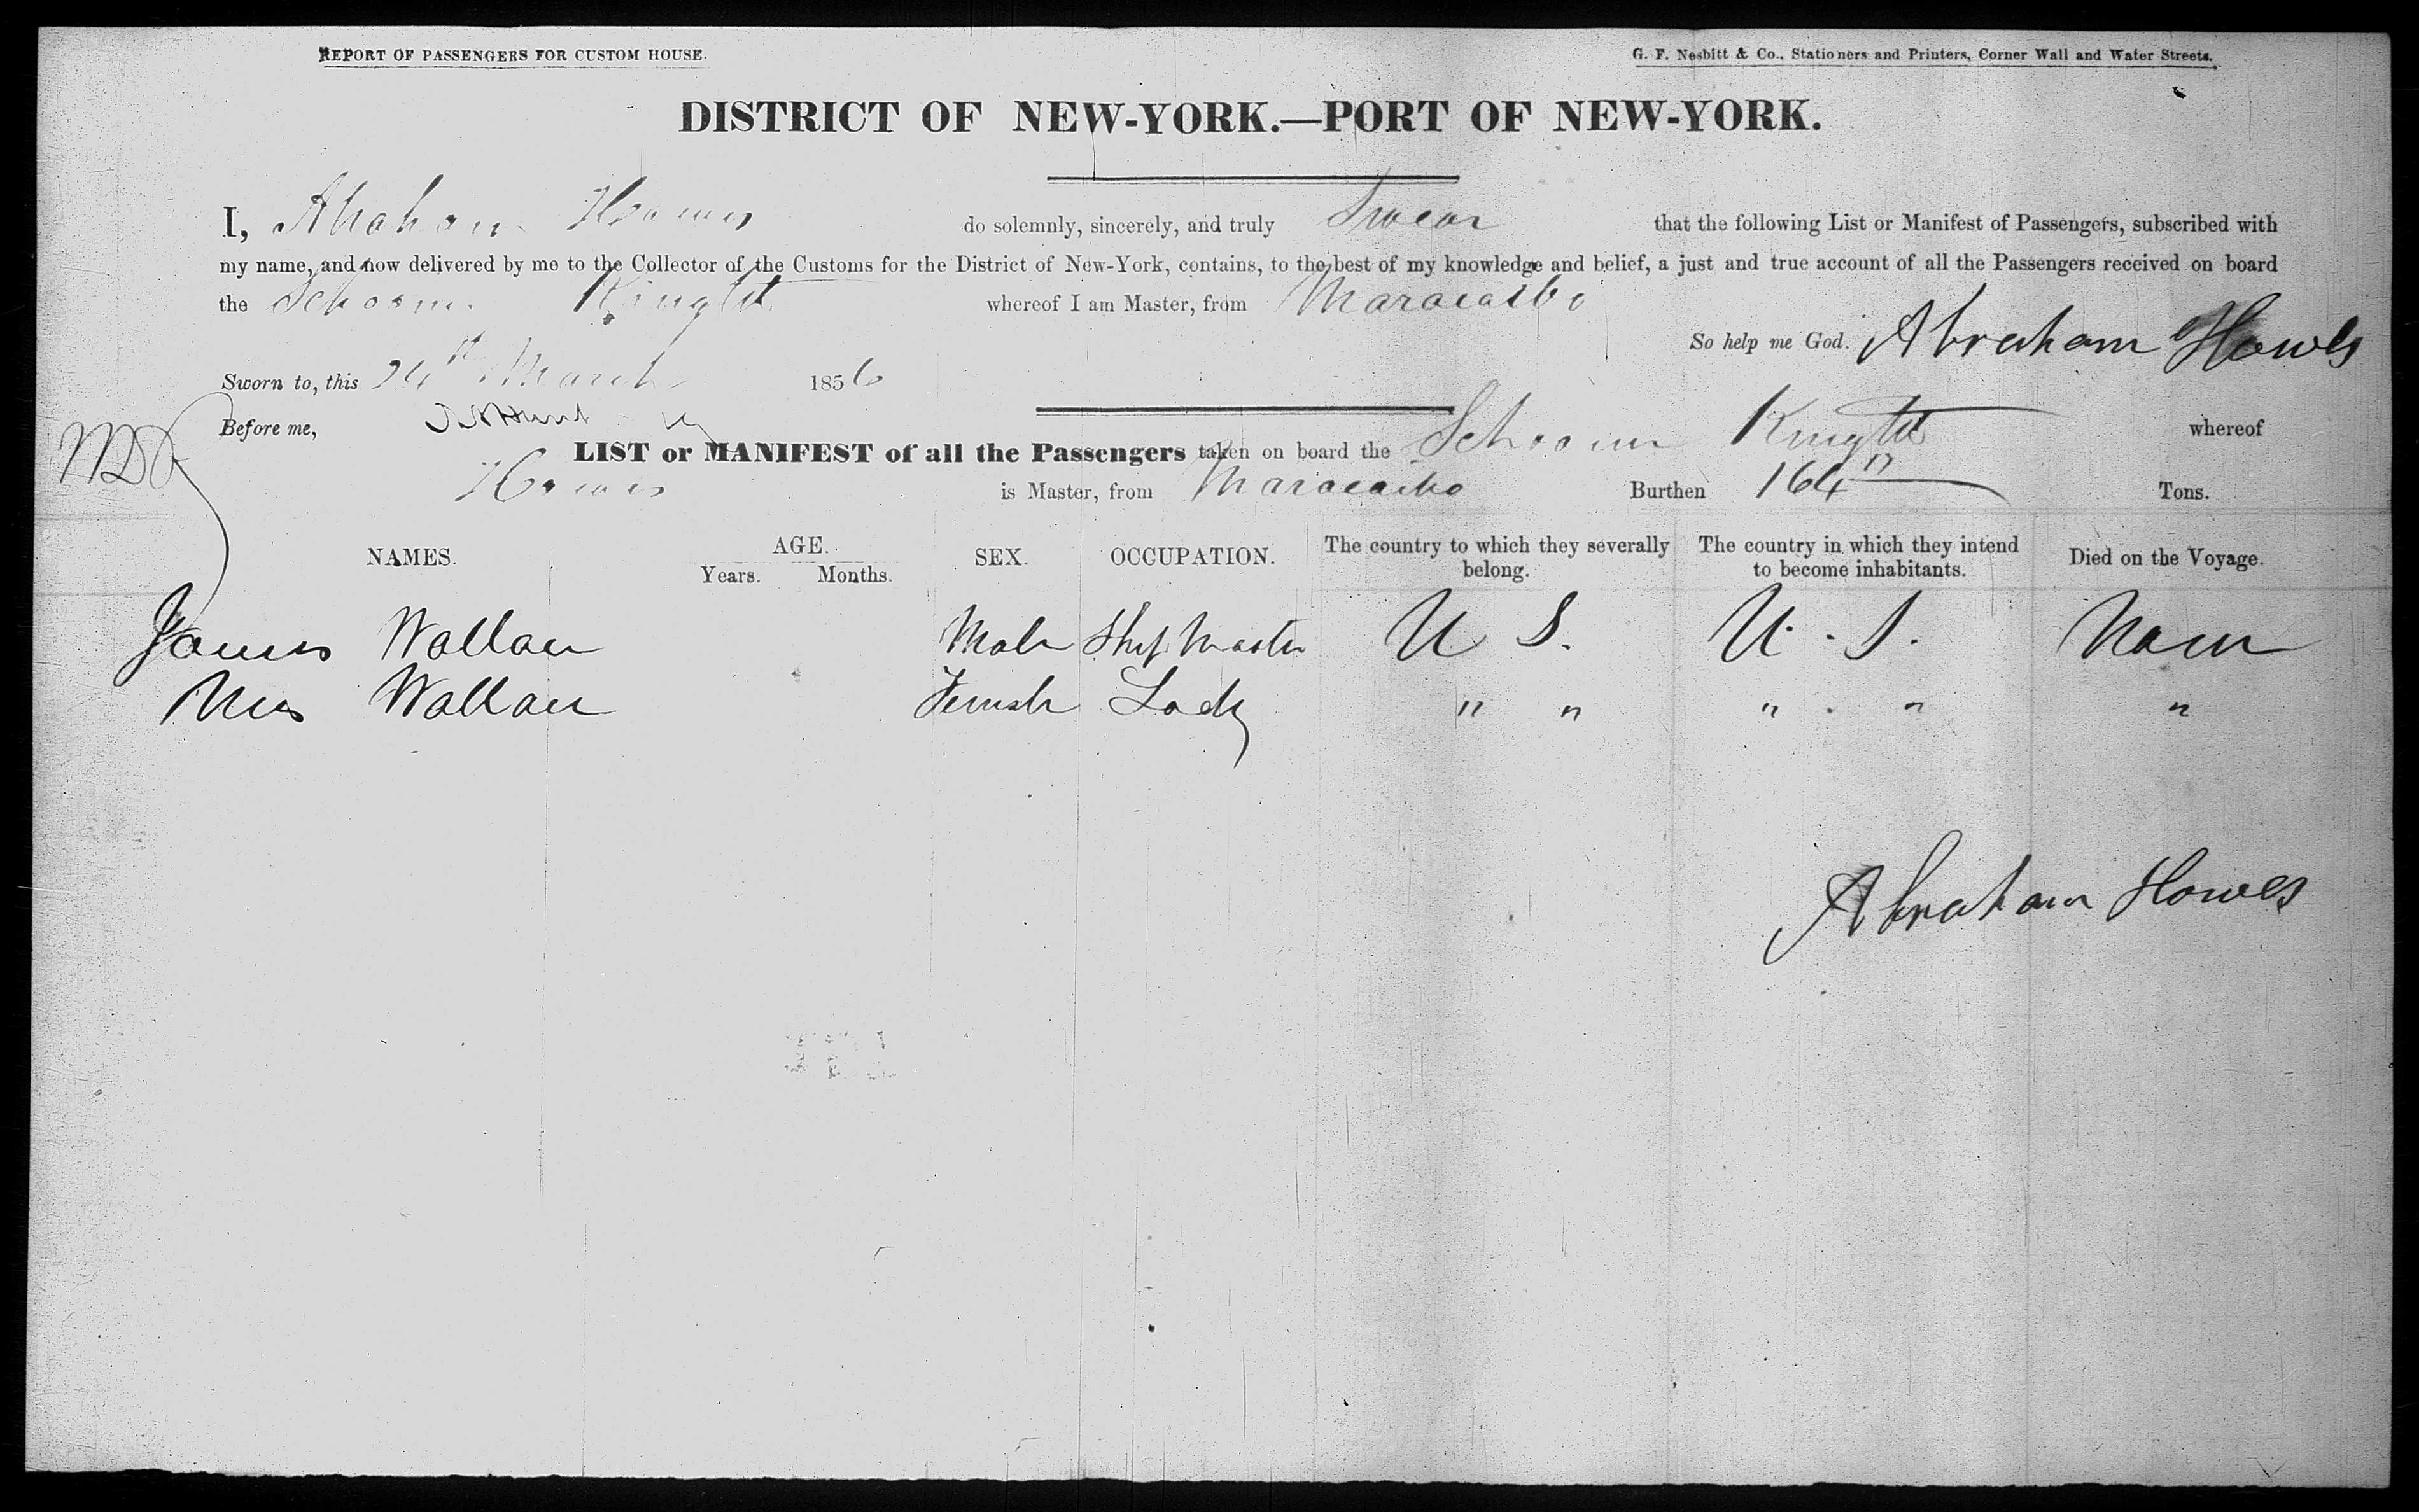 REPORT OF PASSENGERS FOR CUSTOM HOUSE.
G. F. Nesbitt & Co., Stationers and Printers, Corner Wall and Water Streets.
DISTRICT OF NEW-YORK.—PORT OF NEW-YORK.
I, Abraham Howes do solemnly, sincerely, and truly Swear that the following List or Manifest of Passengers, subscribed with
my name, and now delivered by me to the Collector of the Customs for the District of New-York, contains, to the best of my knowledge and belief, a just and true account of all the Passengers received on board
the Schooner Knight whereof I am Master, from Maracaibo
So help me God. Abraham Howes
Sworn to, this 24th March 1856
Before me,
LIST or MANIFEST of all the Passengers taken on board the Schooner Knight whereof
Howes is Master, from Maracaibo Burthen 164 Tons.
NAMES. AGE. Years. Months. SEX. OCCUPATION. The country to which they severally belong. The country in which they intend to become inhabitants. Died on the Voyage.
James Wallace Male Ship Master U S. U. S. None
Mrs Wallace Female Lady " " " " "
Abraham Howes